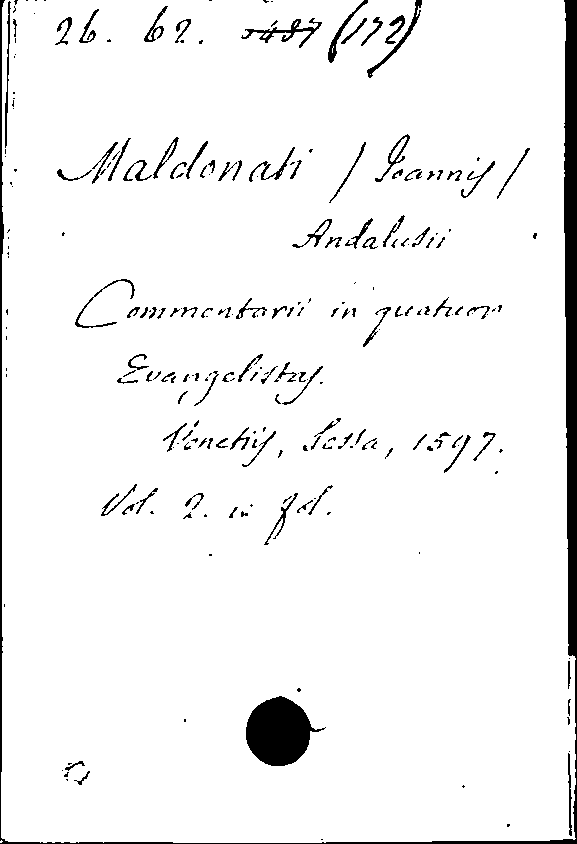 26. 62. 5487 (172)
Maldonati / Joannis /
Andalusii
Commentarii in quatuor
Evangelistas.
Venetiis, Sessa, 1597.
Vol. 2. in fol.